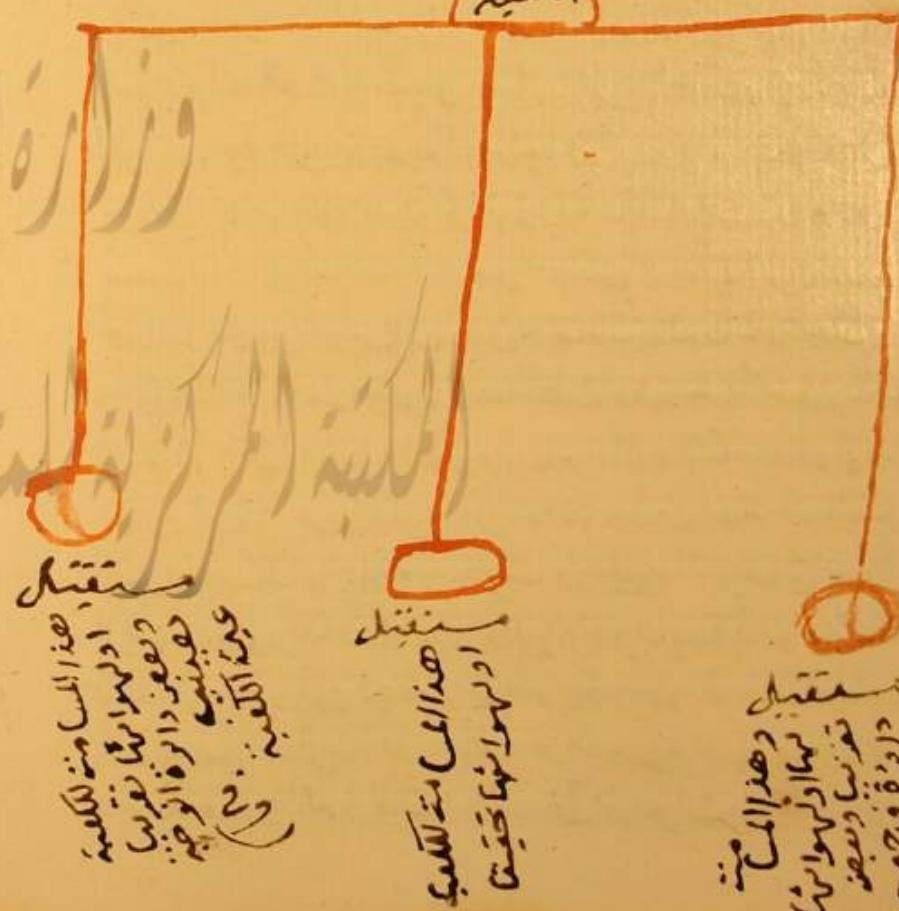 الكعبة
وزارة
المكتبة المركزية
مستقبل
هذا المسامت للكعبة
او لهوائها تقريبا
وبعض دائرة الوجه
عين الكعبة
مستقبل
هذا المسامت للكعبة
او لهوائها تحقيقا
مستقبل
وهذا المسامت
لها او لهوائها
تقريبا وبعض